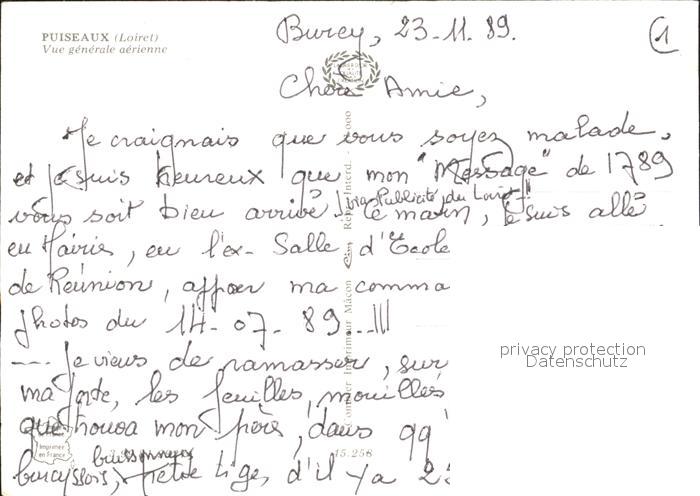 PUISEAUX (Loiret)
Vue générale aérienne
Burcy, 23-11.89.
1
Chère Amie,
Je craignais que vous soyez malade,
et je suis heureux que mon "Message" de 1789
vous soit bien arrivé! via Publicité du Loiret!!
Ce matin, je suis allé
en Mairie, en l'ex-Salle d'École
de Réunion, apporter ma comma
photos du 14-07-89..!!!
Je viens de ramasser, sur
ma porte, les feuilles, mouillés
que trouva mon père, dans qq
buissonneux
burcyssois, petite tige, d'il y a 2
privacy protection
Datenschutz
Imprimé
en France
15.256
Imprimeur Mâcon
Repr. Interd.